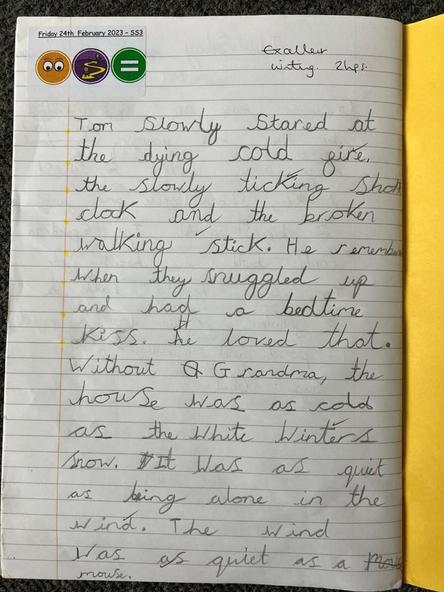 Friday 24th February 2023 – SS3
Excellent
writing. 2hps.
Tom slowly stared at
the dying cold fire,
the slowly ticking
clock and the broken
walking stick. He remember
when they snuggled up
and had a bedtime
kiss. He loved that.
Without Grandma, the
house was as cold
as the white winters
snow. It was as quiet
as being alone in the
wind. The wind
was as quiet as a
mouse.